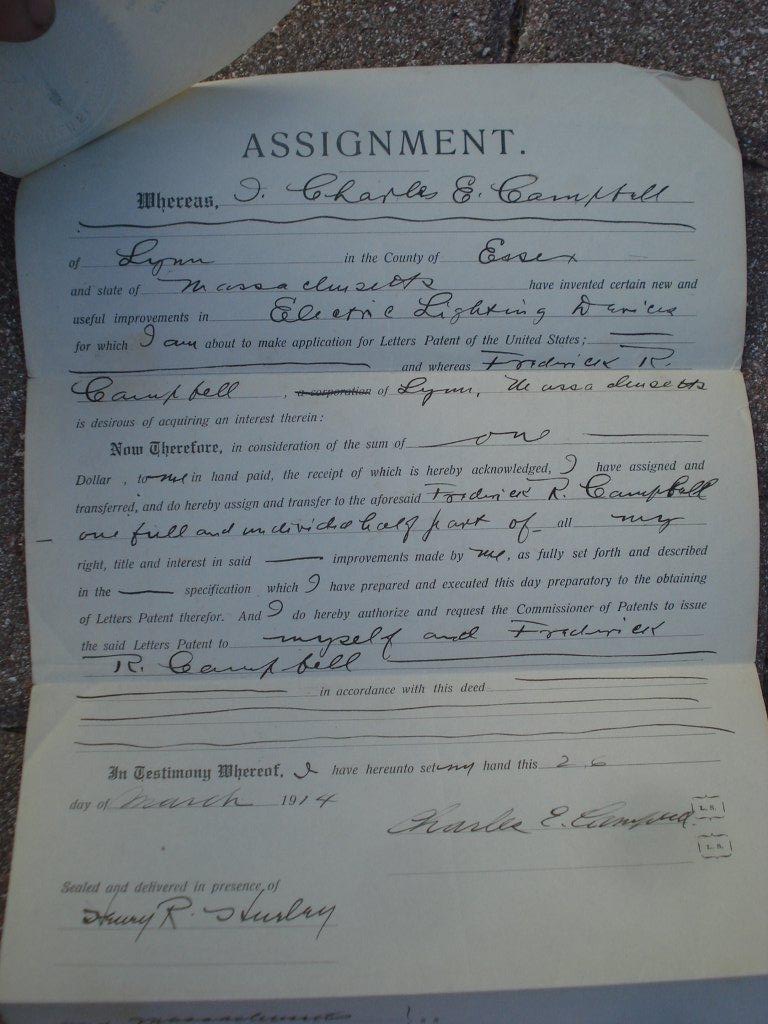 ASSIGNMENT.
Whereas, I. Charles E. Campbell
of Lynn in the County of Essex
and state of Massachusetts have invented certain new and
useful improvements in Electric Lighting Devices
for which I am about to make application for Letters Patent of the United States;
and whereas Frederick R.
Campbell, a corporation of Lynn, Massachusetts
is desirous of acquiring an interest therein:
Now Therefore, in consideration of the sum of one
Dollar, to me in hand paid, the receipt of which is hereby acknowledged, I have assigned and
transferred, and do hereby assign and transfer to the aforesaid Frederick R. Campbell
one full and undivided half part of all my
right, title and interest in said improvements made by me, as fully set forth and described
in the specification which I have prepared and executed this day preparatory to the obtaining
of Letters Patent therefor. And I do hereby authorize and request the Commissioner of Patents to issue
the said Letters Patent to myself and Frederick
R. Campbell
in accordance with this deed
In Testimony Whereof, I have hereunto set my hand this 26
day of March 1914
Charles E. Campbell L.S.
L.S.
Sealed and delivered in presence of
Henry R. Hurley
Massachusetts